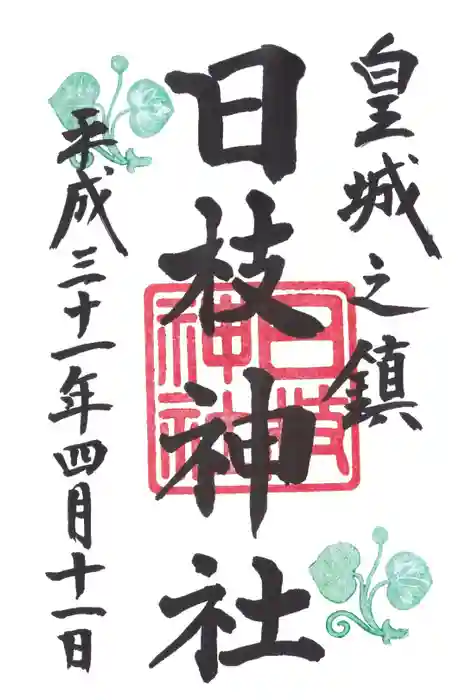 皇城之鎮
日枝神社
日枝神社
平成三十一年四月十一日